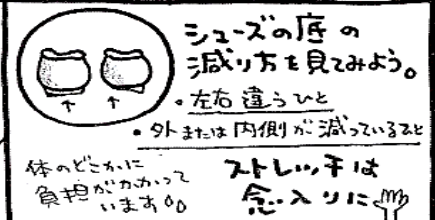 シューズの底の
減り方を見てみよう。
・左右違うひと
・外または内側が減っているひと
体のどこかに
負担がかかって
います
ストレッチは
念入りに